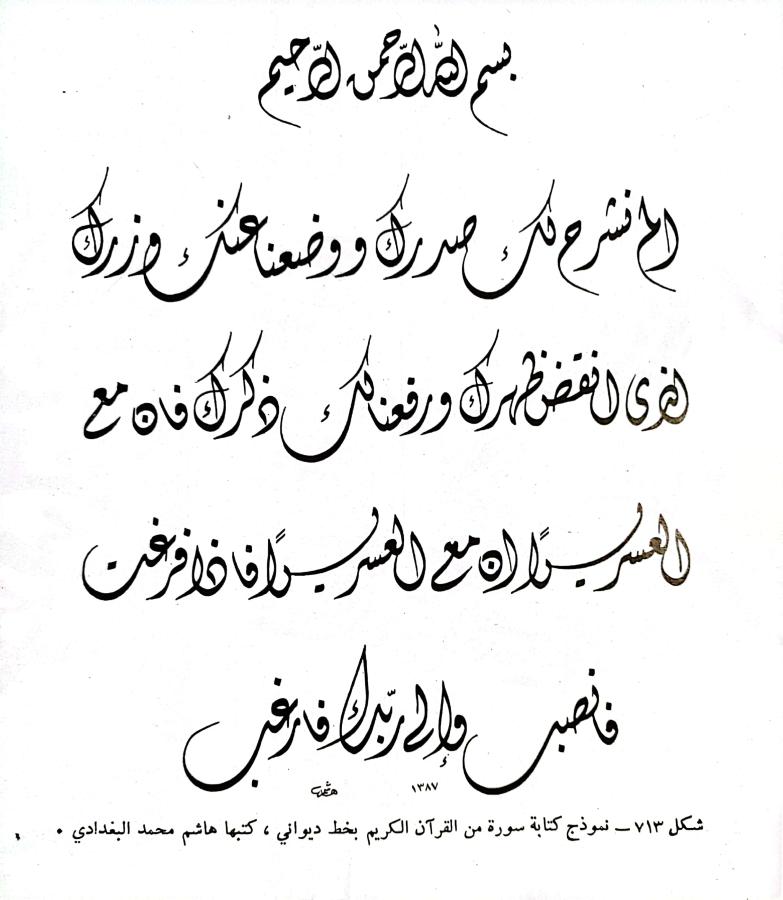 بسم الله الرحمن الرحيم
الم نشرح لك صدرك ووضعنا عنك وزرك
الذى انقض ظهرك ورفعنا لك ذكرك فان مع
العسر يسرًا ان مع العسر يسرًا فاذا فرغت
فانصب وإلى ربّك فارغب
هاشم ١٣٨٧
شكل ٧١٣ – نموذج كتابة سورة من القرآن الكريم بخط ديواني ، كتبها هاشم محمد البغدادي ٠